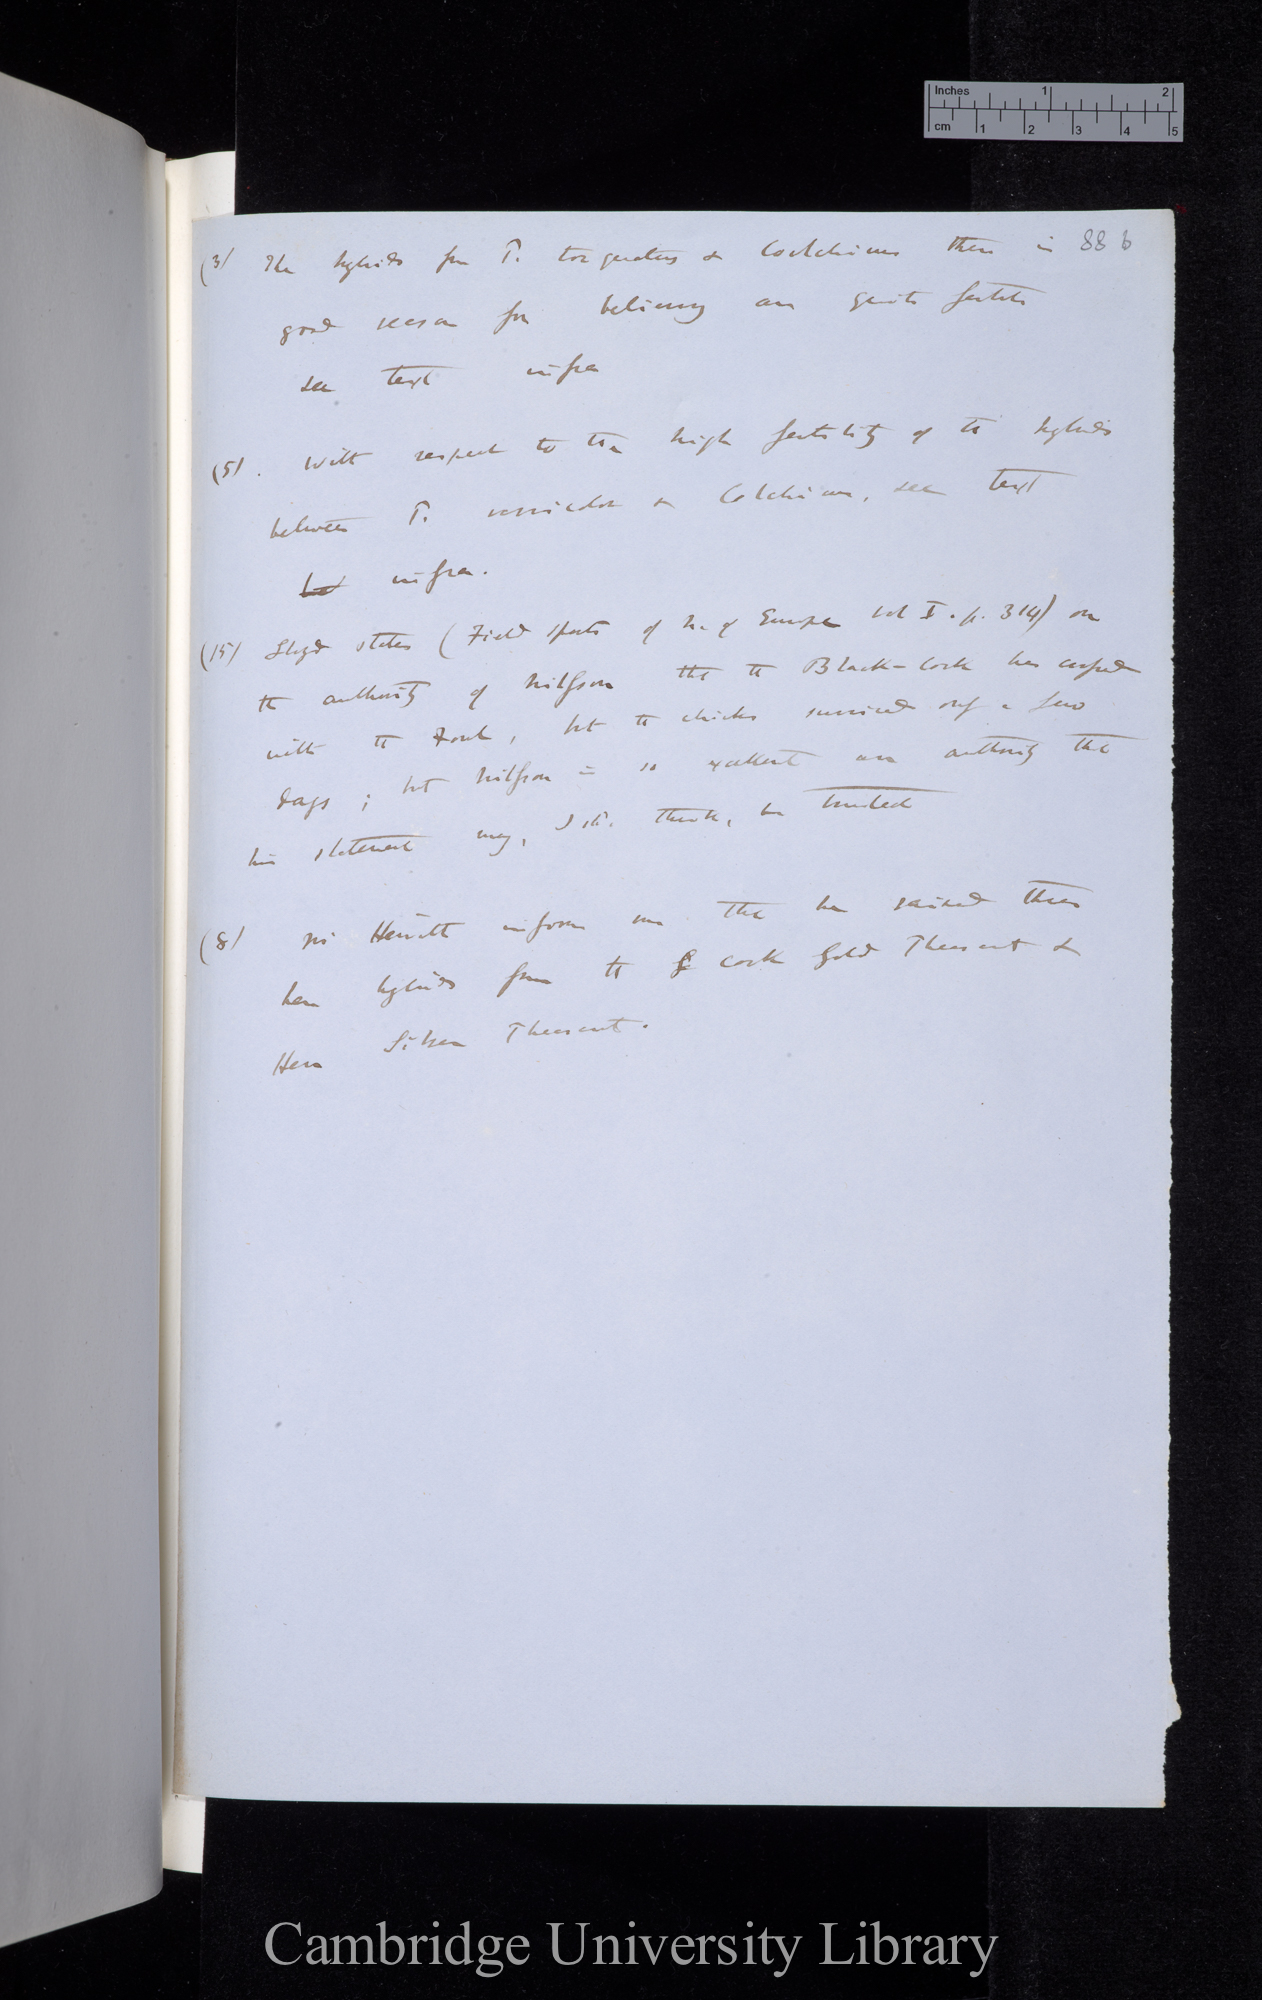 Inches 1 2
cm 1 2 3 4 5
88 b
(3) The hybrids from P. torquatus & Coolchicus there is
good reason for believing are quite fertile
see text infra
(5). With respect to the high fertility of the hybrids
between P. versicolor & Colchicus, see text
infra.
(15) Lloyd states (Field Sports of N. of Europe vol I. p. 314) on
the authority of Nilsson that the Black-cock has coupled
with the Fowl, but the chicks survived only a few
days; but Nilsson is so excellent an authority that
his statement may, I shd. think, be trusted
(8) Mr Hewitt informs me that he raised three
hen hybrids from the cock Gold Pheasant &
Hen Silver Pheasant.
Cambridge University Library